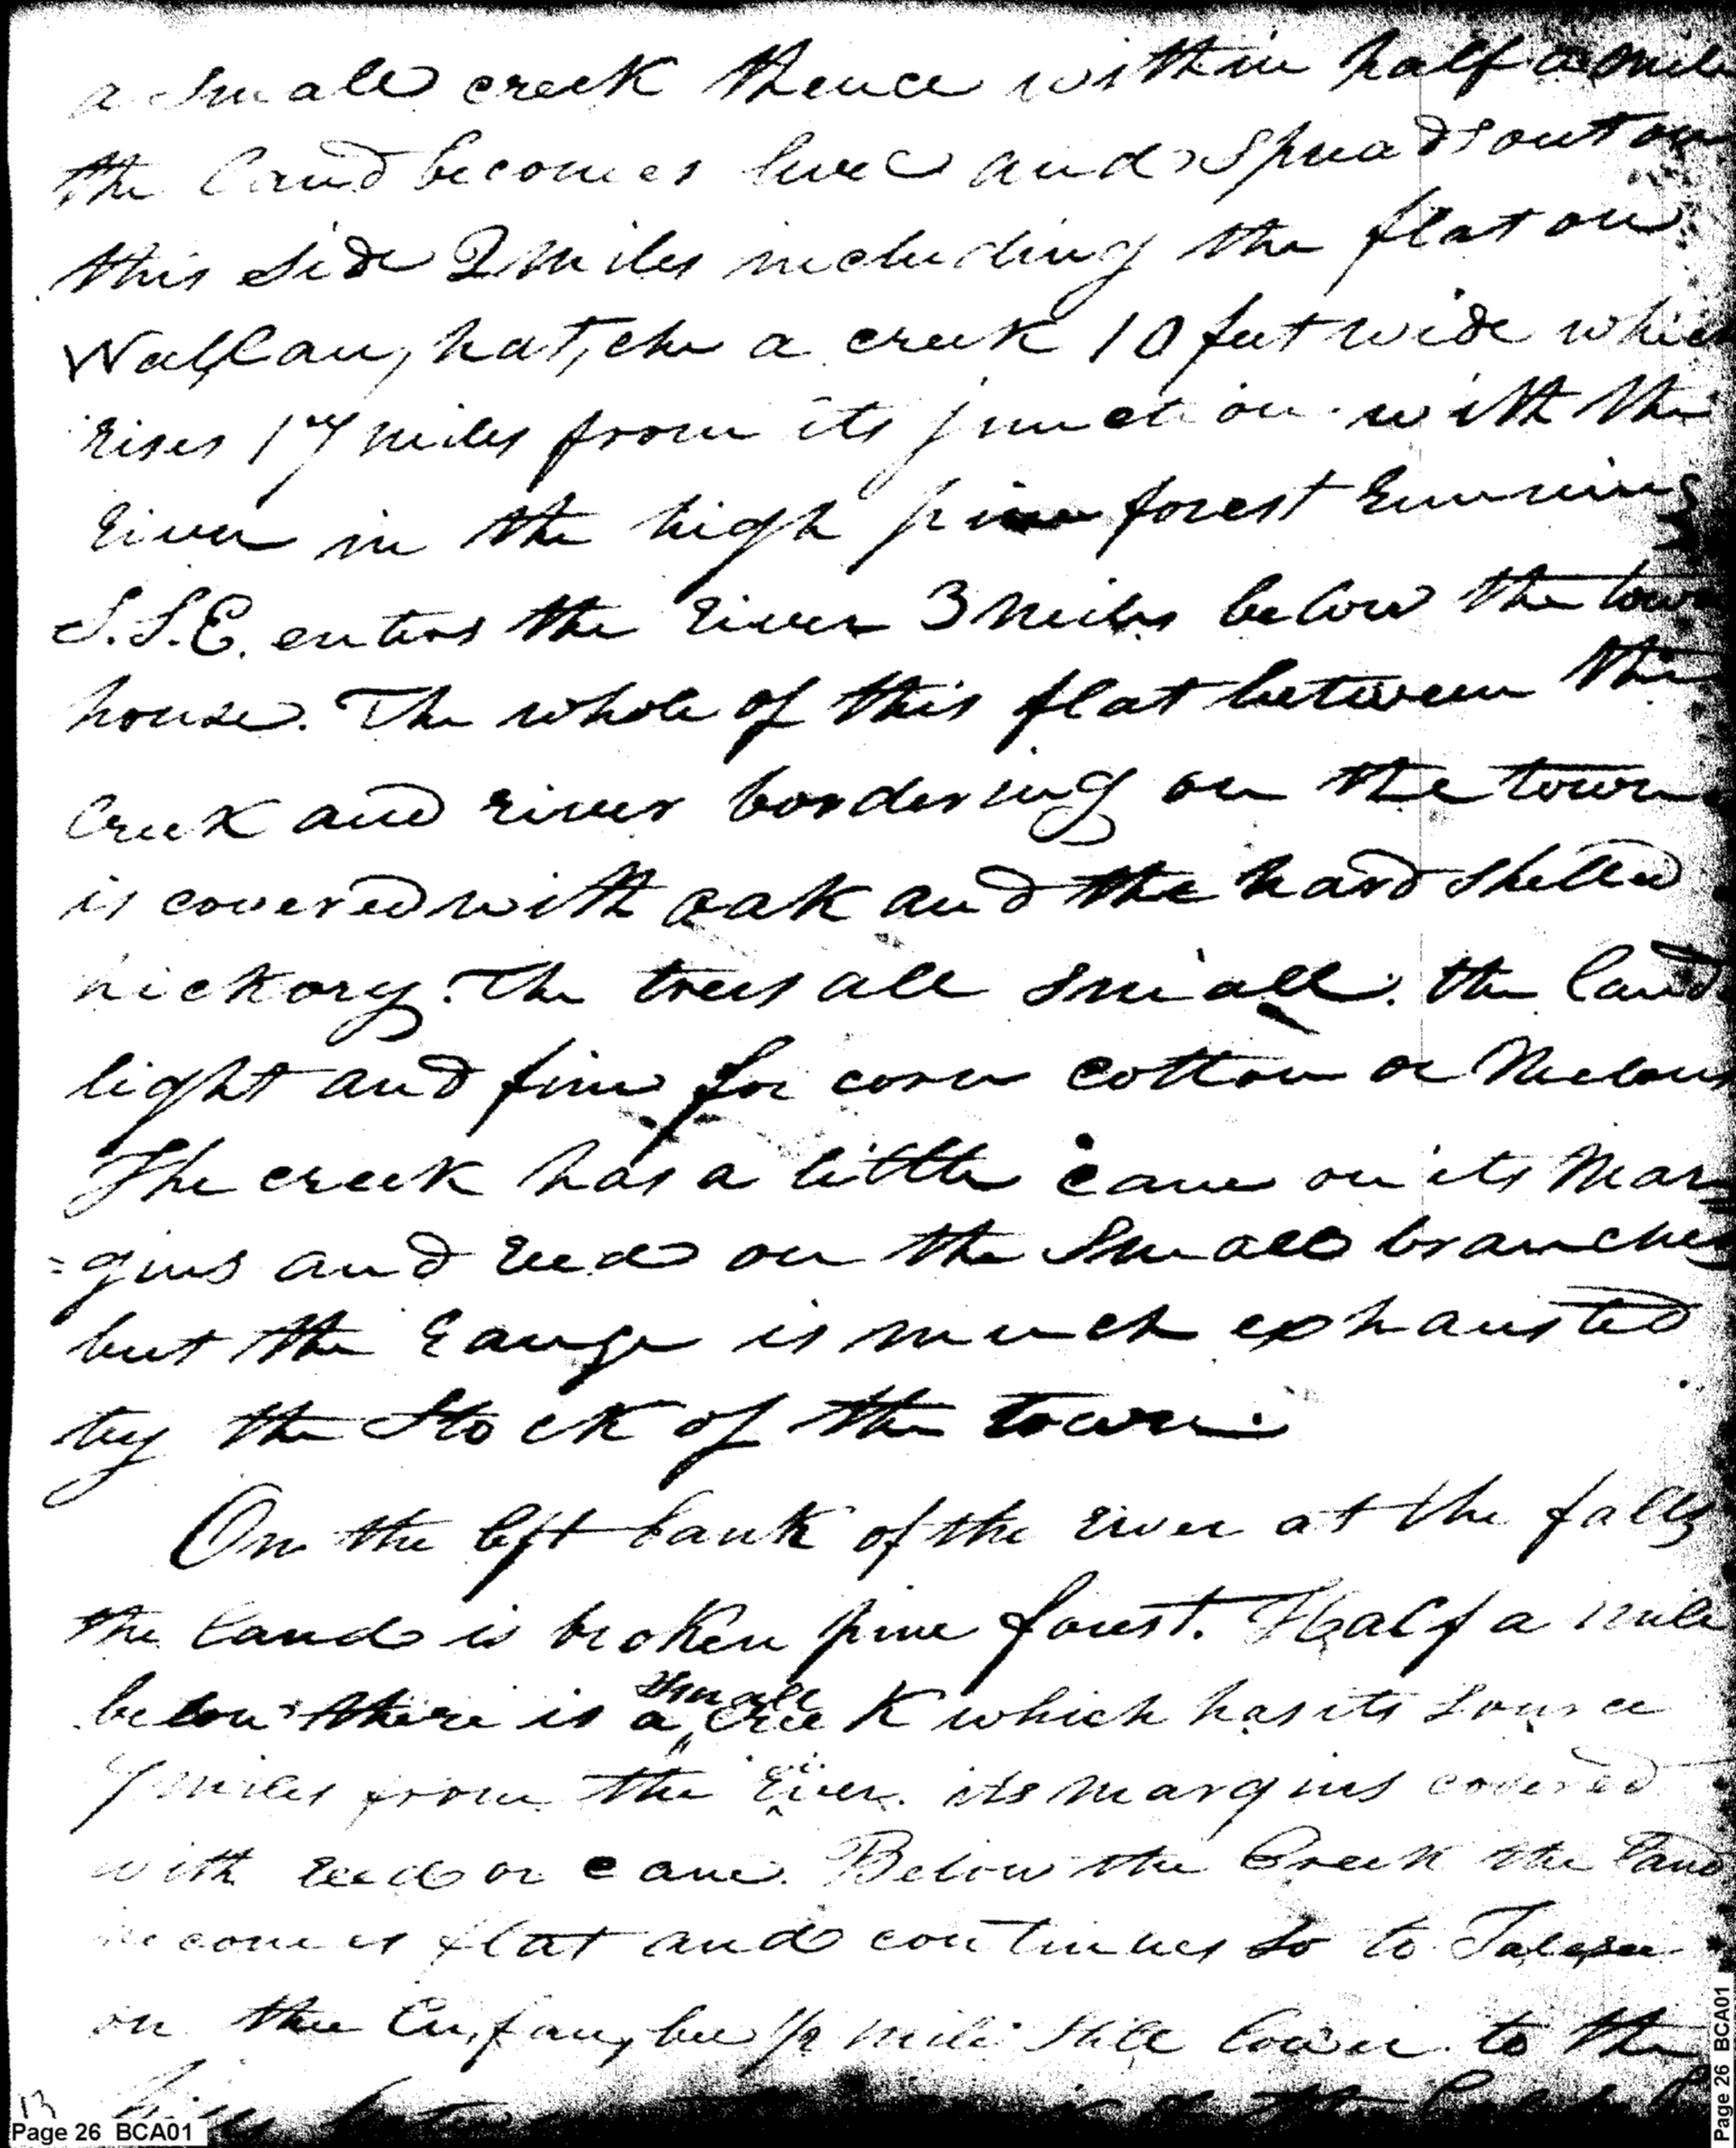 a small creek thence within half a mile
the land becomes level and spreads out on
this side 2 miles including the flat on
Wallau,hat,che a creek 10 feet wide which
rises 17 miles from its junction with the
river in the high pine forest running
S.S.E. enters the river 3 miles below the town
house. The whole of this flat between the
creek and river bordering on the town
is covered with oak and the hard shelled
hickory. The trees all small. the land
light and fine for corn cotton or Melons
The creek has a little cane on its Mar=
=gins and reed on the Small branches
but the range is much exhausted
by the Stock of the town.
On the left bank of the river at the falls
the land is broken pine forest. Half a mile
below there is a small creek which has its source
7 miles from the river. its margins covered
with reed or cane. Below the Creek the land
becomes flat and continues so to Talesee
on the Eu,fau,bee 1/2 mile still lower to the
13
Page 26 BCA01
Page 26 BCA01